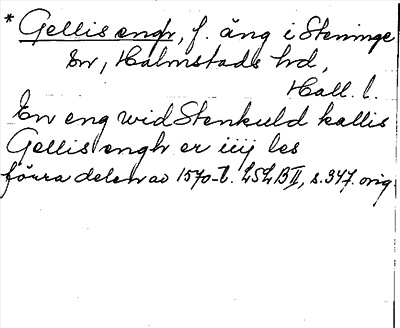 * Gellis engh, f. äng i Steninge
sn, Halmstads hd,
Hall. l.
En eng wid Stenkuld kallis
Gellis engh er iiij les
förra delen av 1570-t. LSLB II, s. 347. orig.